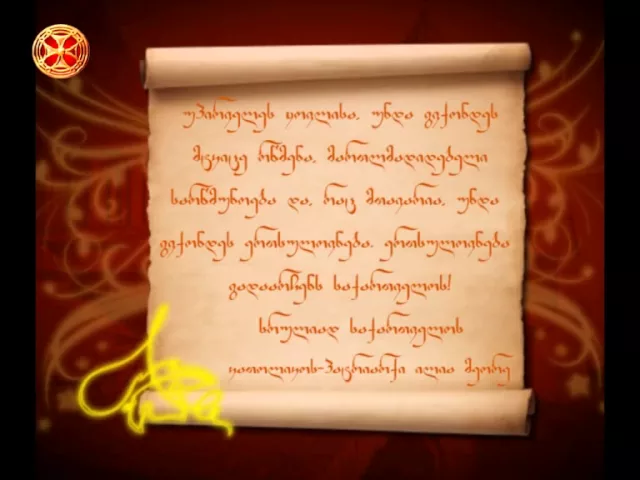 უპირველეს ყოვლისა, უნდა გვქონდეს
მტკიცე რწმენა, მართლმადიდებელი
სარწმუნოება და, რაც მთავარია, უნდა
გვქონდეს ერთსულოვნება. ერთსულოვნება
გადაარჩენს საქართველოს!
სრულიად საქართველოს
კათოლიკოს-პატრიარქი ილია მეორე